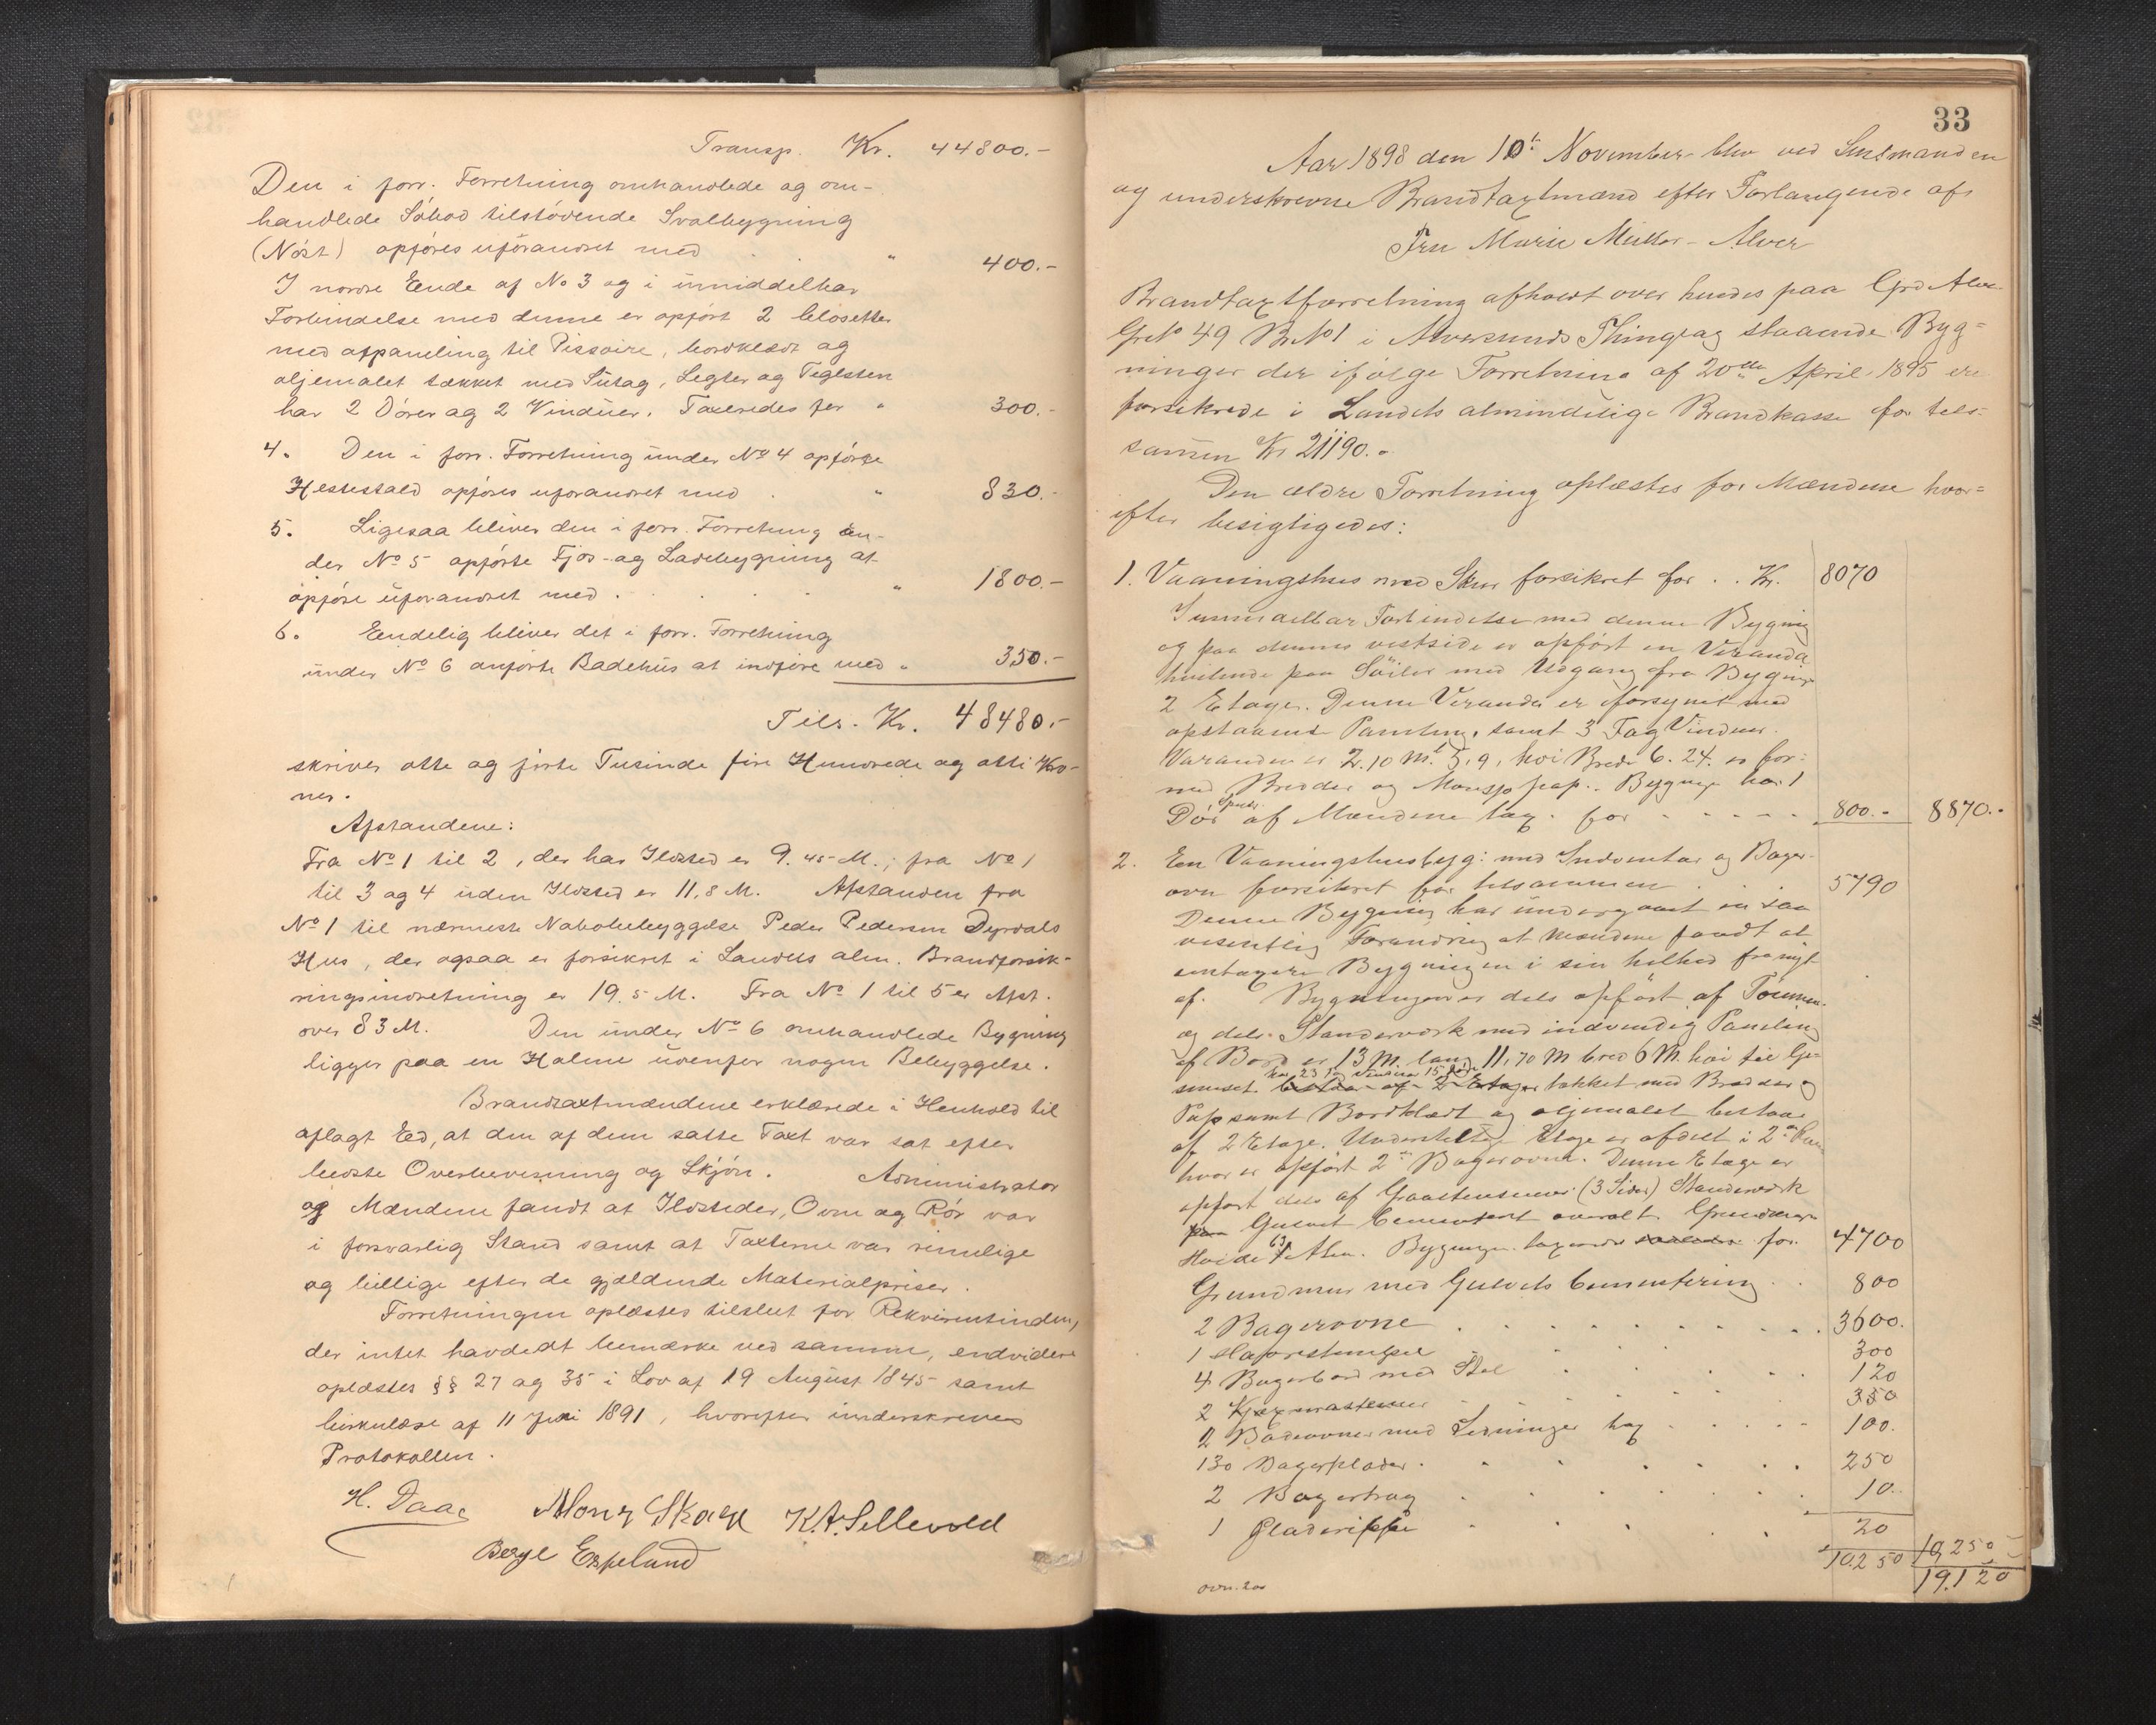 Transp. Kr. 44800.-
Den i forr. Forretning omhandlede og om-
handlede Söbod tilstödende Svalbygning
(Nöst) opföres uforandret med . . " 400.-
I nordre Ende af No 3 og i umiddelbar
Forbindelse med denne er opfört 2 Closetter
med afpaneling til Pissoire, bordklædt og
oljemalet tækket med Sutag, Legter og Teglsten
har 2 Dörer og 2 Vinduer. Taxeredes for " 300.-
4. Den i forr. Forretning under No 4 opförte
Hestestald opföres uforandret med . " 830.-
5. Ligesaa bliver den i forr. Forretning un-
der No 5 opförte Fjos- og Ladebygning at
opföre uforandret med . . . . " 1800.-
6. Endelig bliver det i forr. Forretning
under No 6 anförte Badehus at indföre med " 350.-
Tils. Kr. 48480.-
skriver otte og förti Tusinde fire Hundrede og otti Kro-
ner.
Afstandene:
Fra No 1 til 2, der har Ildsted er 9.45 M.; fra No 1
til 3 og 4 uden Ildsted er 11,8 M. Afstanden fra
No 1 til nærmeste Nabobebyggelse Peder Pedersen Dyrdals
Hus, der ogsaa er forsikret i Landets alm. Brandforsik-
ringsindretning er 19.5 M. Fra No 1 til 5 er Afst.
over 83 M. Den under No 6 omhandlede Bygning
ligger paa en Holme udenfor nogen Bebyggelse.
Brandtaxtmændene erklærede i Henhold til
aflagt Ed, at den af dem satte Taxt var sat efter
bedste Overbevisning og Skjön. Administrator
og Mændene fandt at Ildsteder, Ovne og Rör var
i forsvarlig Stand samt at Taxterne var rimelige
og billige efter de gjældende Materialpriser.
Forretningen oplæstes tilslut for Rekvirentinden,
der intet havde at bemærke ved samme, endvidere
oplæstes §§ 27 og 35 i Lov af 19 August 1845 samt
Cirkulære af 11 Juni 1891, hvorefter underskreves
Protokollen.
H. Daae Mons Skage K.A. Sellevold
Berge Espelund
33
Aar 1898 den 10de November blev ved Lensmanden
og underskrevne Brandtaxtmænd efter Forlangende af
Fru Marie Müller - Alver
Brandtaxtforretning afholdt over hendes paa Grd Alver
GrNo 49 BrNo 1 i Alversunds Thinglag staaende Byg-
ninger der ifölge Forretning af 20de April 1895 ere
forsikrede i Landets almindelige Brandkasse for tils-
sammen Kr 21190..
Den ældre Forretning oplæstes for Mændene hvor-
efter besigtigedes:
1. Vaaningshus med Skur forsikret for . . Kr. 8070
I umiddelbar Forbindelse med denne Bygning
og paa dennes vestside er opfört en Veranda
hvilende paa Söiler med Udgang fra Bygnings
2 Etage. Denne Veranda er forsynet med
opstaaende Paneling, samt 3 Fag Vinduer.
Varanden er 2.10 M. 5,9, höi Bred 6.24. er for-
med Bredder og pap.. Bygnings har 1
Dör af Mændene tax. for - - - - - 800.- 8870.-
2. Een Vaaningshusbyg: med Indventar og Bager-
ovn forsikret for tilsammen . 5790
Denne Bygning har undergaaet en saa
væsentlig Forandring at Mændene fandt at
omtaxere Bygningen i sin helhed fra nyt
af. Bygningen er dels opfört af Tömmer
og dels Standerværk med indvendig Paneling
af Bord er 13 M. lang 11,70 M bred 6 M. höi til Ge-
har 23 Fag Vinduer 15
simset bestaar af 2 Etager tækket med Bredder og
Pap samt Bordklædt og oljemalet bestaar
af 2 Etage. Etage er afdelt i 2
hvor er opfört 2 Bagerovne. Denne Etage er
opfört dels af Graastensmur (3 Sider) Standerværk
Gulvet Cementert overalt. Grundmurs
Höide Alen. Bygningen taxeres for 4700
Grundmur med Gulvets Cementering . . 800
2 Bagerovne . . . . . . . . . 3600.
1 . . . 300
4 Bagerbord med Stel . . . . 120
2 . . . . 350
2 Badeovner med Ledninger tax . . . . 100.
130 Bagerplader . . . . . . 250
2 Bagertrug . . . . . . 10.
1 . . . . . 20
10250 10,250
19.120